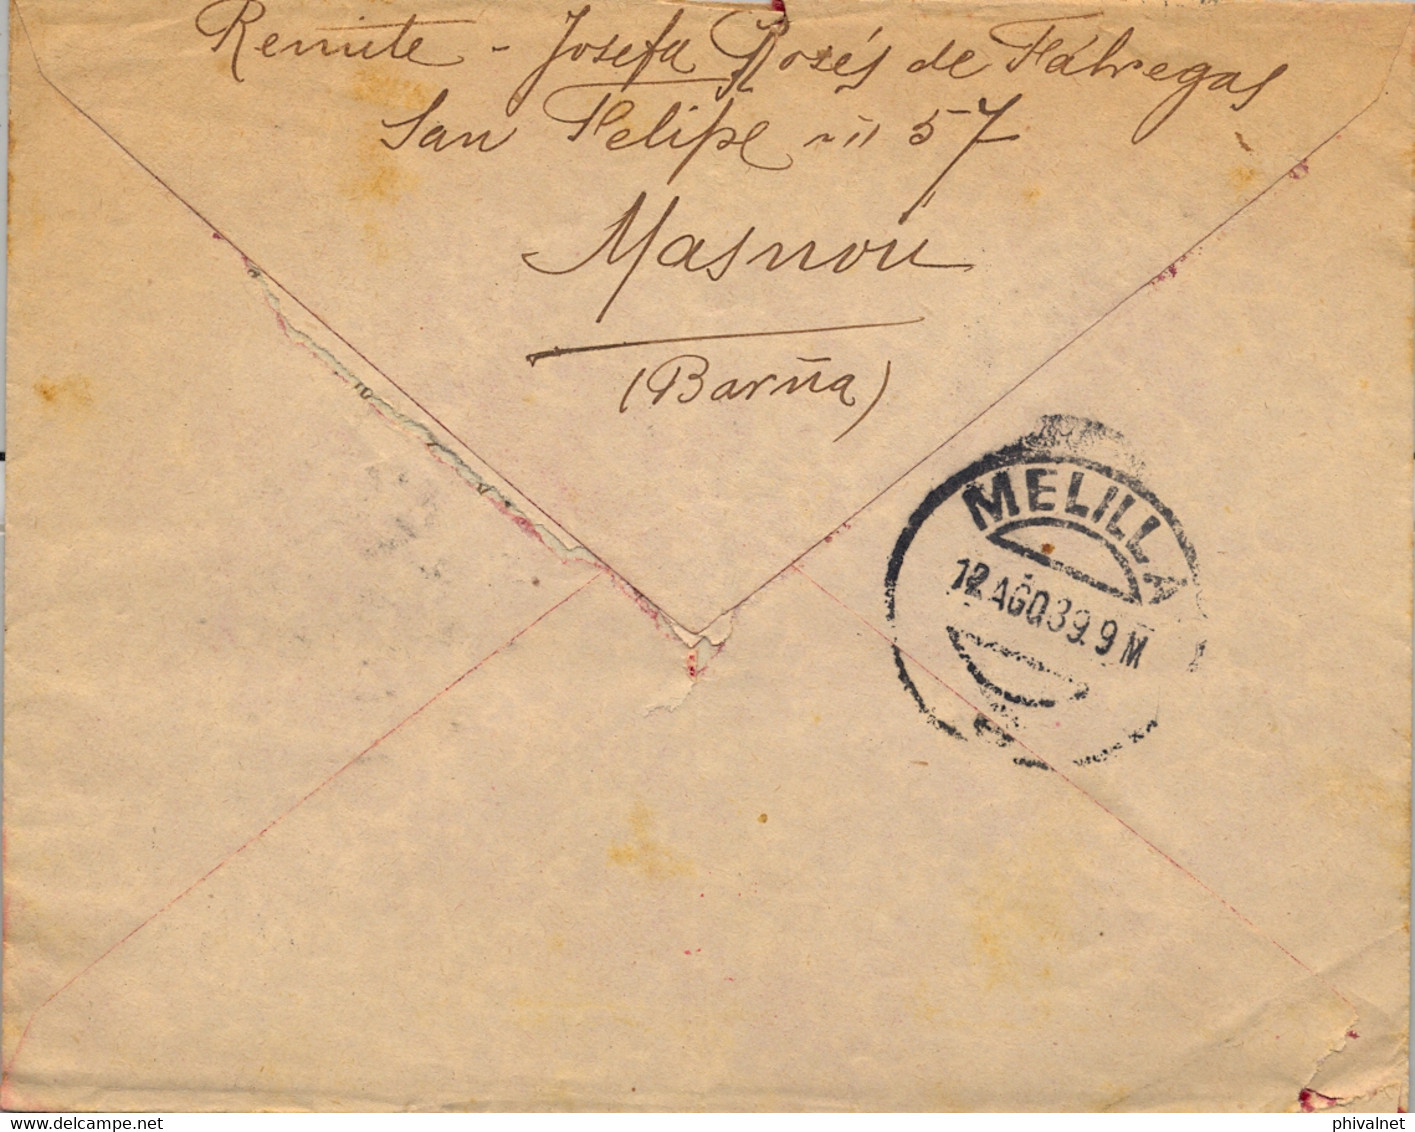 Remite - Josefa Rosés de Fábregas
San Felipe nº 57
Masnou
(Barña)
MELILLA
12 AGO 39. 9 M
www.delcampe.net
phivalnet